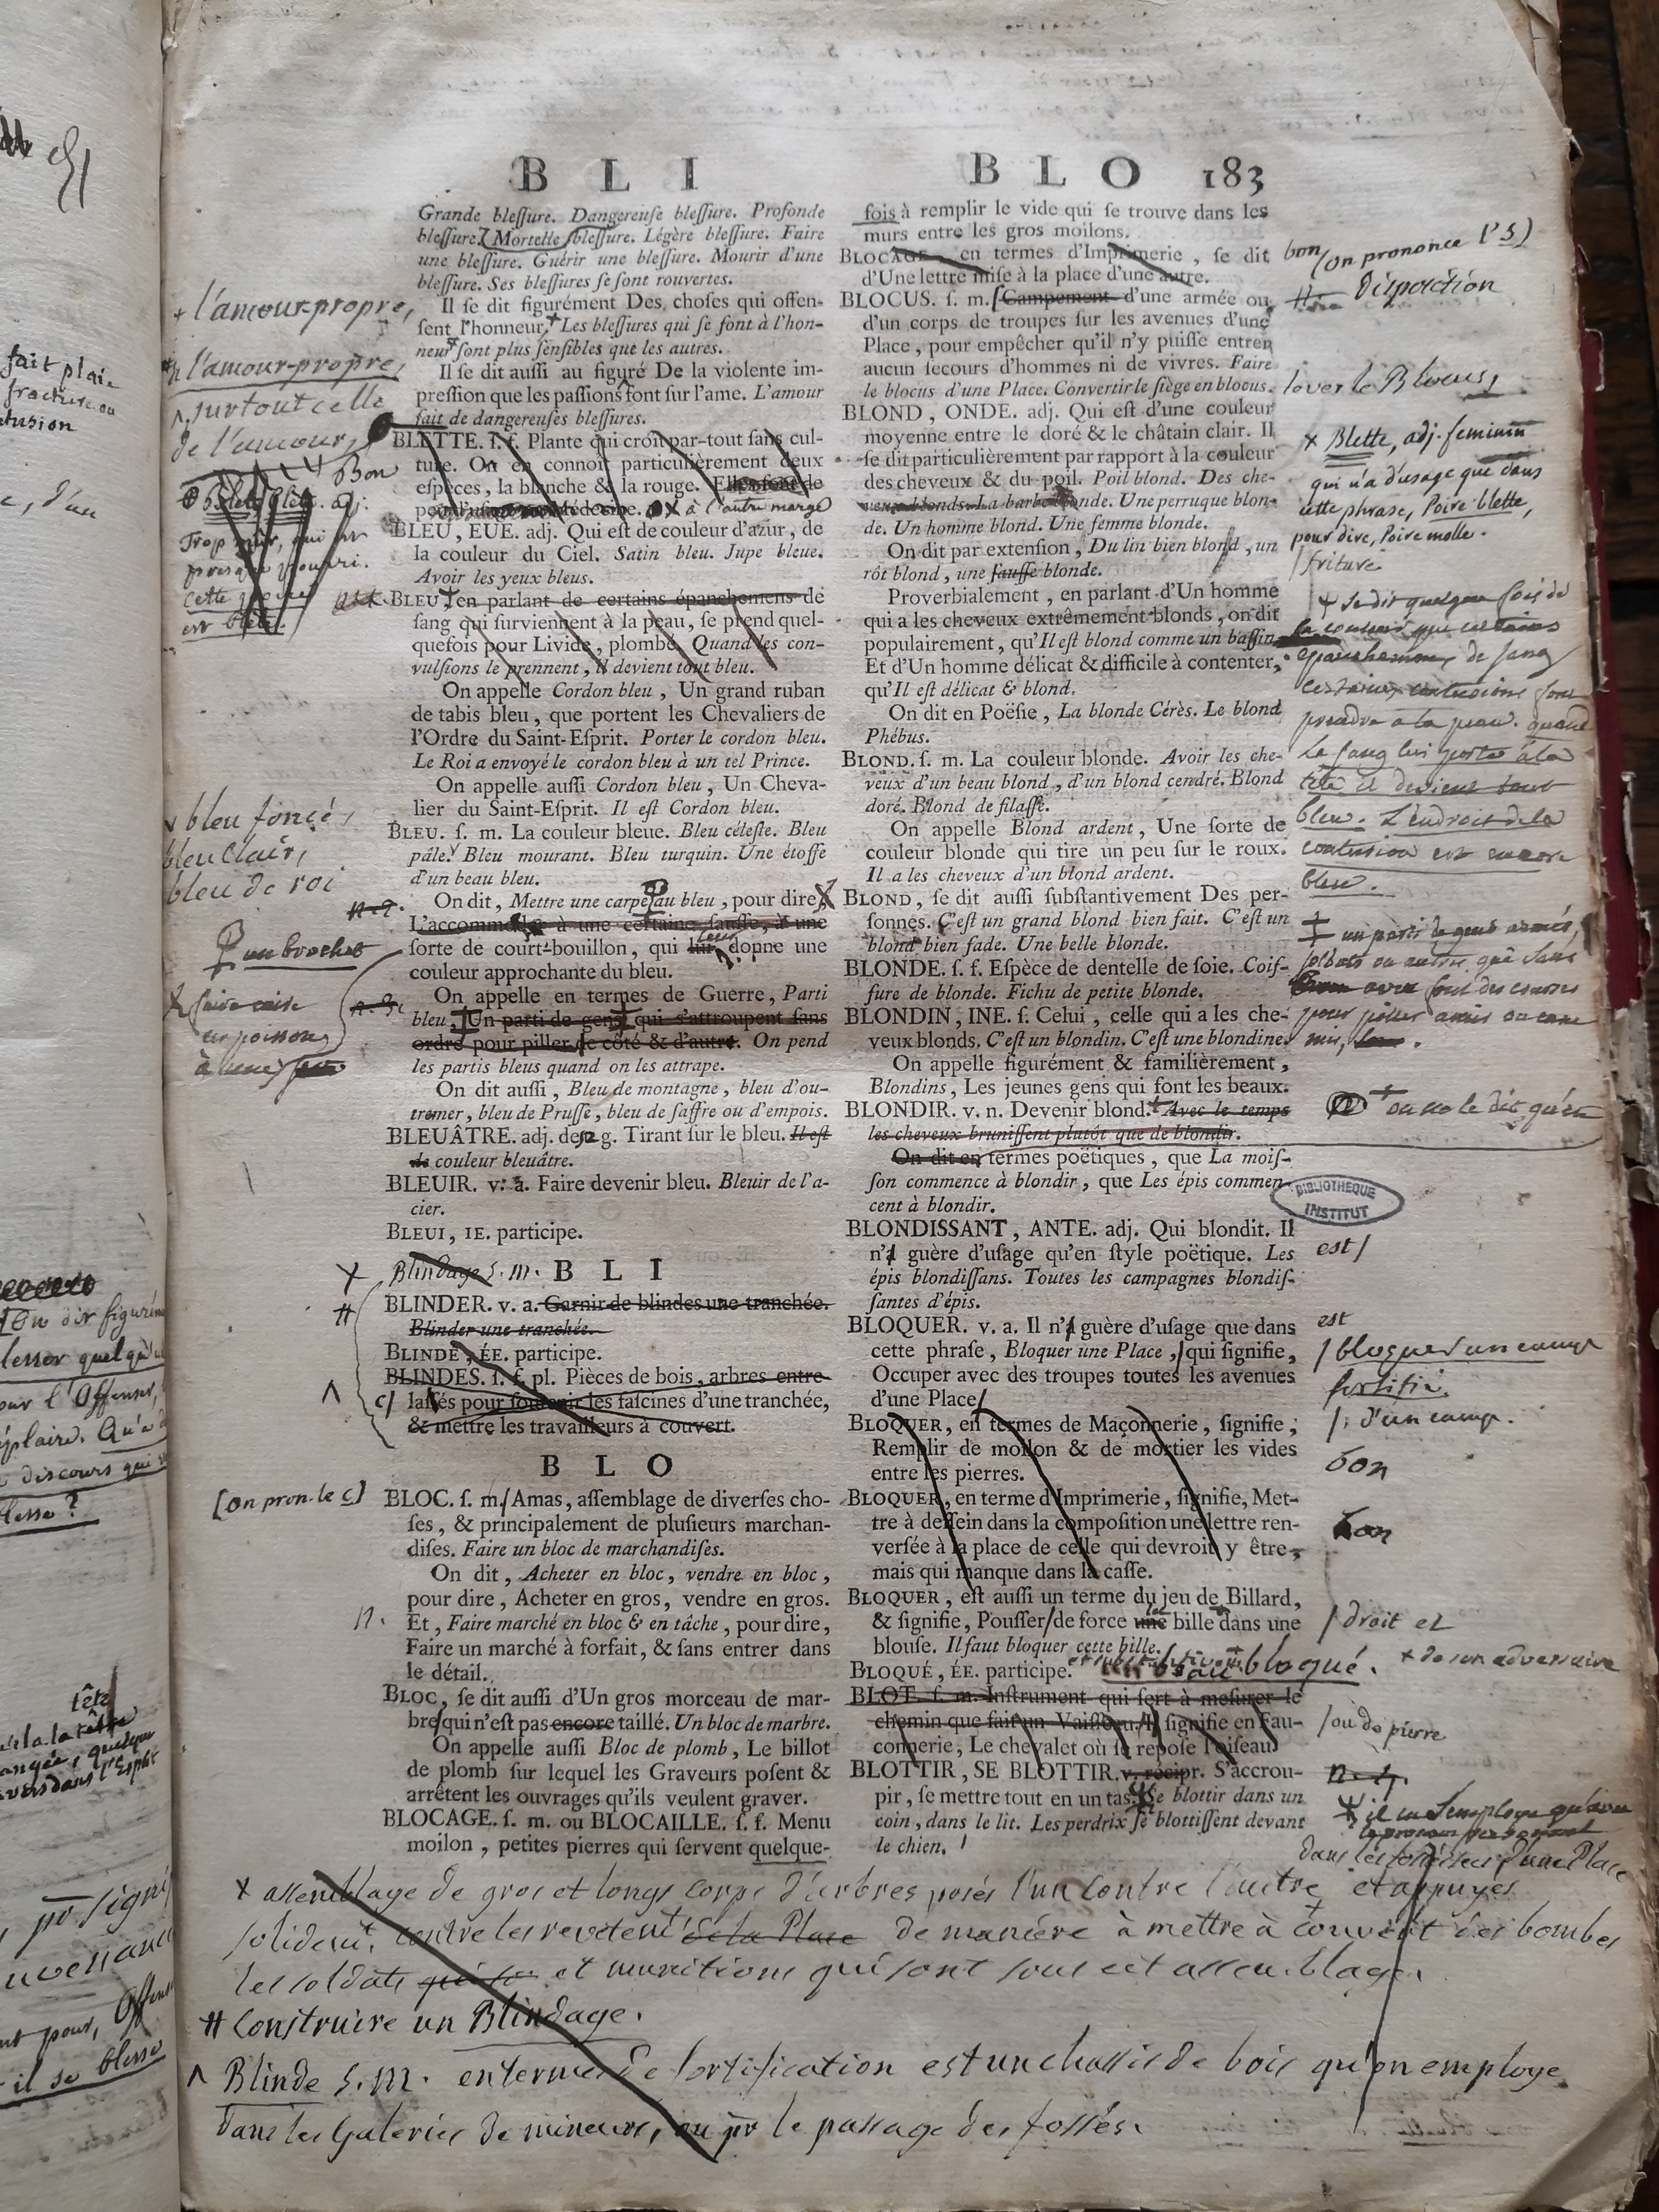 B L I
Grande bleſſure. Dangereuſe bleſſure. Profonde
bleſſure. Mortelle bleſſure. Légère bleſſure. Faire
une bleſſure. Guérir une bleſſure. Mourir d'une
bleſſure. Ses bleſſures ſe ſont rouvertes.
Il ſe dit figurément Des choſes qui offen-
ſent l'honneur. Les bleſſures qui ſe font à l'hon-
neur ſont plus ſenſibles que les autres.
Il ſe dit auſſi au figuré De la violente im-
preſſion que les paſſions font ſur l'ame. L'amour
fait de dangereuſes bleſſures.
BLETTE. ſ. f. Plante qui croît par-tout ſans cul-
ture. On en connoît particulièrement deux
eſpèces, la blanche & la rouge. Elles ſont de
x à l'autre marge
BLEU, EUE. adj. Qui eſt de couleur d'azur, de
la couleur du Ciel. Satin bleu. Jupe bleue.
Avoir les yeux bleus.
BLEU, en parlant de certains épanchemens de
ſang qui ſurviennent à la peau, ſe prend quel-
quefois pour Livide, plombé. Quand les con-
vulſions le prennent, il devient tout bleu.
On appelle Cordon bleu, Un grand ruban
de tabis bleu, que portent les Chevaliers de
l'Ordre du Saint-Eſprit. Porter le cordon bleu.
Le Roi a envoyé le cordon bleu à un tel Prince.
On appelle auſſi Cordon bleu, Un Cheva-
lier du Saint-Eſprit. Il eſt Cordon bleu.
BLEU. ſ. m. La couleur bleue. Bleu céleſte. Bleu
pâle. Bleu mourant. Bleu turquin. Une étoffe
d'un beau bleu.
On dit, Mettre une carpe au bleu, pour dire,
L'accommoder à une certaine ſauſſe, à une
ſorte de court-bouillon, qui lui donne une
couleur approchante du bleu.
On appelle en termes de Guerre, Parti
bleu, Un parti de gens qui s'attroupent ſans
ordre pour piller de côté & d'autre. On pend
les partis bleus quand on les attrape.
On dit auſſi, Bleu de montagne, bleu d'ou-
tremer, bleu de Pruſſe, bleu de ſaffre ou d'empois.
BLEUÂTRE. adj. de 2 g. Tirant ſur le bleu. Il eſt
de couleur bleuâtre.
BLEUIR. v. a. Faire devenir bleu. Bleuir de l'a-
cier.
BLEUI, IE. participe.
Blindage s. m. B L I
BLINDER. v. a. Garnir de blindes une tranchée.
Blinder une tranchée.
BLINDÉ, ÉE. participe.
BLINDES. ſ. f. pl. Pièces de bois, arbres entre-
laſſés pour ſoutenir les faſcines d'une tranchée,
& mettre les travailleurs à couvert.
B L O
BLOC. ſ. m. Amas, aſſemblage de diverſes cho-
ſes, & principalement de pluſieurs marchan-
diſes. Faire un bloc de marchandiſes.
On dit, Acheter en bloc, vendre en bloc,
pour dire, Acheter en gros, vendre en gros.
Et, Faire marché en bloc & en tâche, pour dire,
Faire un marché à forfait, & ſans entrer dans
le détail.
BLOC, ſe dit auſſi d'Un gros morceau de mar-
bre qui n'eſt pas encore taillé. Un bloc de marbre.
On appelle auſſi Bloc de plomb, Le billot
de plomb ſur lequel les Graveurs poſent &
arrêtent les ouvrages qu'ils veulent graver.
BLOCAGE. ſ. m. ou BLOCAILLE. ſ. f. Menu
moilon, petites pierres qui ſervent quelque-
B L O 183
fois à remplir le vide qui ſe trouve dans les
murs entre les gros moilons.
BLOCAGE, en termes d'Imprimerie, ſe dit
d'Une lettre miſe à la place d'une autre.
BLOCUS. ſ. m. Campement d'une armée ou
d'un corps de troupes ſur les avenues d'une
Place, pour empêcher qu'il n'y puiſſe entrer
aucun ſecours d'hommes ni de vivres. Faire
le blocus d'une Place. Convertir le ſiège en blocus.
BLOND, ONDE. adj. Qui eſt d'une couleur
moyenne entre le doré & le châtain clair. Il
ſe dit particulièrement par rapport à la couleur
des cheveux & du poil. Poil blond. Des che-
veux blonds. La barbe blonde. Une perruque blon-
de. Un homme blond. Une femme blonde.
On dit par extenſion, Du lin bien blond, un
rôt blond, une ſauſſe blonde.
Proverbialement, en parlant d'Un homme
qui a les cheveux extrêmement blonds, on dit
populairement, qu'Il eſt blond comme un baſſin.
Et d'Un homme délicat & difficile à contenter,
qu'Il eſt délicat & blond.
On dit en Poëſie, La blonde Cérès. Le blond
Phébus.
BLOND. ſ. m. La couleur blonde. Avoir les che-
veux d'un beau blond, d'un blond cendré. Blond
doré. Blond de filaſſe.
On appelle Blond ardent, Une ſorte de
couleur blonde qui tire un peu ſur le roux.
Il a les cheveux d'un blond ardent.
BLOND, ſe dit auſſi ſubſtantivement Des per-
ſonnes. C'eſt un grand blond bien fait. C'eſt un
blond bien fade. Une belle blonde.
BLONDE. ſ. f. Eſpèce de dentelle de ſoie. Coif-
fure de blonde. Fichu de petite blonde.
BLONDIN, INE. ſ. Celui, celle qui a les che-
veux blonds. C'eſt un blondin. C'eſt une blondine.
On appelle figurément & familièrement,
Blondins, Les jeunes gens qui font les beaux.
BLONDIR. v. n. Devenir blond. Avec le temps
les cheveux bruniſſent plutôt que de blondir.
On dit en termes poëtiques, que La moiſ-
ſon commence à blondir, que Les épis commen-
cent à blondir.
BLONDISSANT, ANTE. adj. Qui blondit. Il
n'a guère d'uſage qu'en ſtyle poëtique. Les
épis blondiſſans. Toutes les campagnes blondiſ-
ſantes d'épis.
BLOQUER. v. a. Il n'a guère d'uſage que dans
cette phraſe, Bloquer une Place, qui ſignifie,
Occuper avec des troupes toutes les avenues
d'une Place.
BLOQUER, en termes de Maçonnerie, ſignifie,
Remplir de moilon & de mortier les vides
entre les pierres.
BLOQUER, en terme d'Imprimerie, ſignifie, Met-
tre à deſſein dans la compoſition une lettre ren-
verſée à la place de celle qui devroit y être,
mais qui manque dans la caſſe.
BLOQUER, eſt auſſi un terme du jeu de Billard,
& ſignifie, Pouſſer de force une bille dans une
blouſe. Il faut bloquer cette bille.
BLOQUÉ, ÉE. participe. bloqué.
BLOT. ſ. m. Inſtrument qui ſert à meſurer le
chemin que fait un Vaiſſeau. Il ſignifie en Fau-
connerie, Le chevalet où ſe repoſe l'oiſeau.
BLOTTIR, SE BLOTTIR. v. récipr. S'accrou-
pir, ſe mettre tout en un tas. Se blottir dans un
coin, dans le lit. Les perdrix ſe blottiſſent devant
le chien.
+ l'amour-propre,
l'amour-propre,
^ surtout celle
de l'amour,
Bon
Trop mur, qui est
presque pourri.
cette poire
est blète.
bleu foncé,
bleu clair,
bleu de roi
un brochet
faire cuire
un poisson
à une
[on pron. le c]
n.
bon (on prononce l's)
Disposition
lever le Blocus,
x Blette, adj. feminin
qui n'a d'usage que dans
cette phrase, Poire blette,
pour dire, Poire molle.
friture
+ se dit quelque fois de
la couleur que certains
épanchemens de sang
certaines contusions font
prendre à la peau. quand
Le sang lui porte à la
tête il devient tout
bleu. L'endroit de la
contusion est encore
bleu.
+ un parti de gens armés,
soldats ou autres qui sans
aveu font des courses
pour piller amis ou enne
mis,
+ on ne le dit qu'en
BIBLIOTHEQUE
INSTITUT
est /
est
/ bloquer un camp
fortifié.
/, d'un camp.
bon
bon
/ droit et
+ de son adversaire
/ ou de pierre
il ne s'emploie qu'avec
le pronom personnel
x assemblage de gros et longs corps d'arbres posés l'un contre l'autre et appuyés
solidemt. contre les revêtemt de la Place de manière à mettre à couvert des bombes
les soldats et munitions qui sont sous cet assemblage.
# Construire un Blindage.
^ Blinde s. m. en terme de fortification est un chassis de bois qu'on employe
dans les Galeries de mineurs, ou pr le passage des fossés.